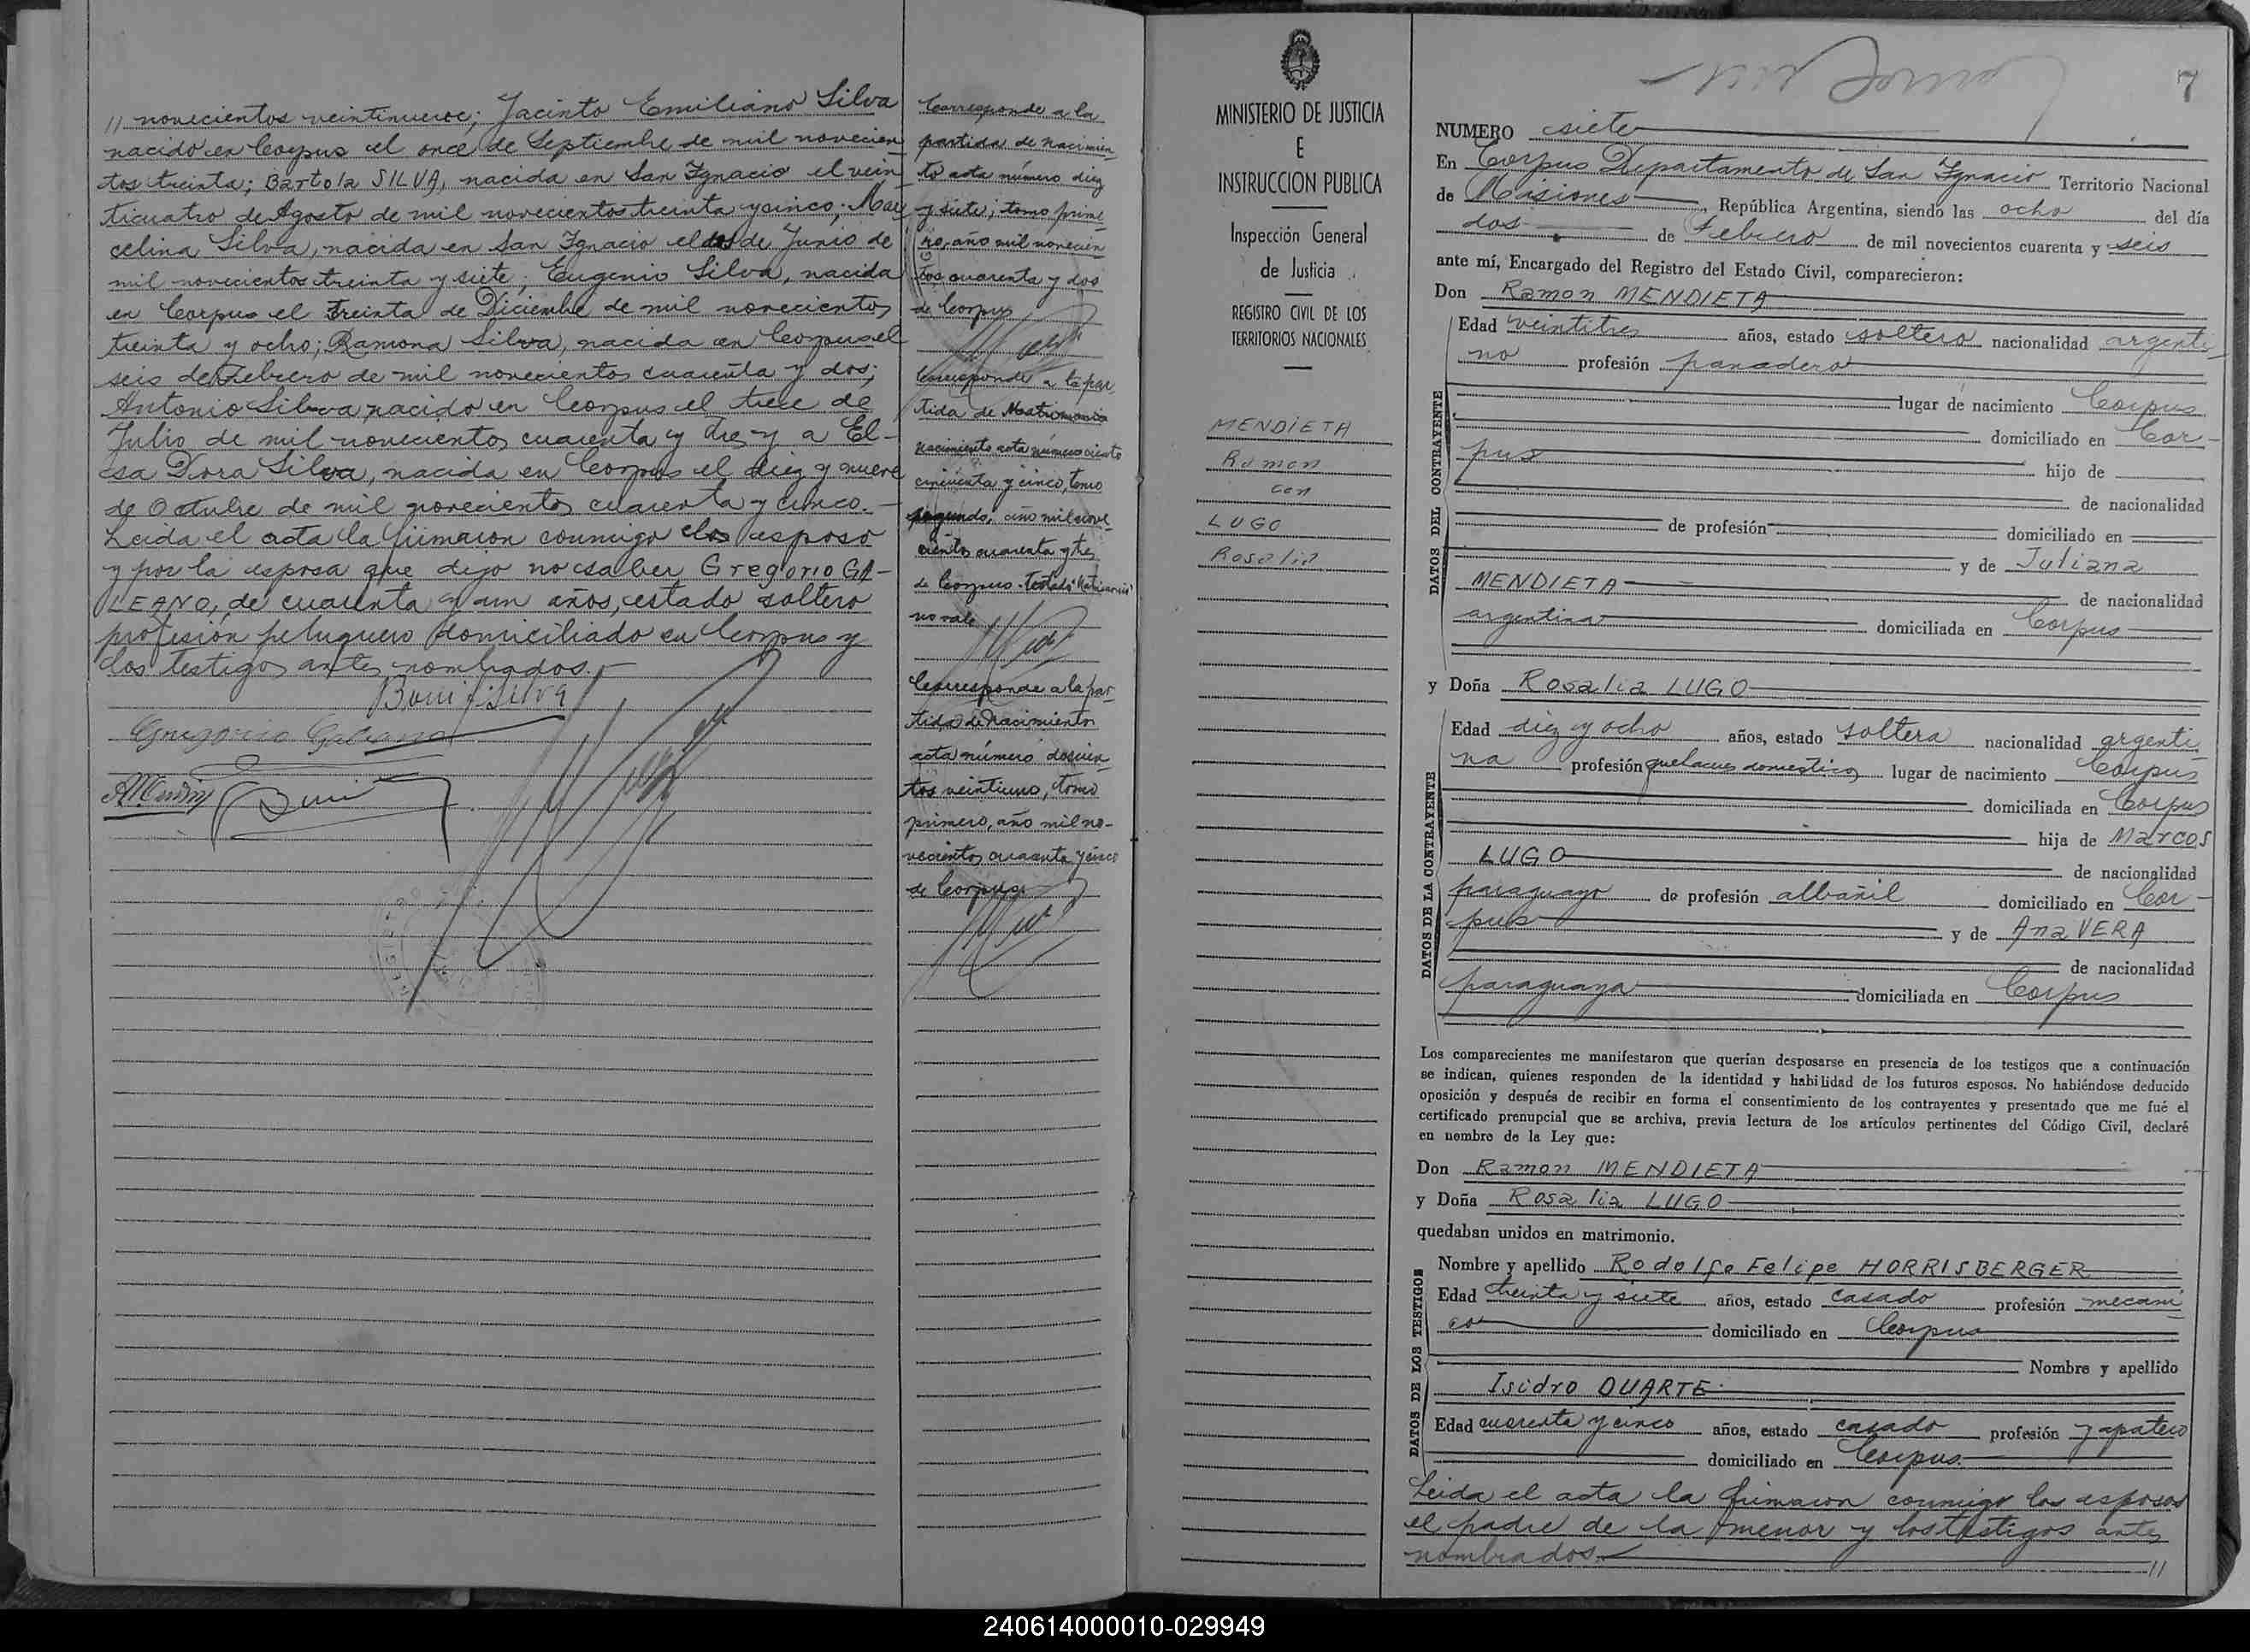 // novecientos veintinueve; Jacinto Emiliano Silva
nacido en Corpus el once de Septiembre de mil novecien
tos treinta; Bartola SILVA, nacida en San Ignacio el vein
ticuatro de Agosto de mil novecientos treinta y cinco; Mar
celina Silva, nacida en San Ignacio el dos de Junio de
mil novecientos treinta y siete; Eugenio Silva, nacida
en Corpus el treinta de Diciembre de mil novecientos
treinta y ocho; Ramona Silva, nacida en Corpus el
seis de Febrero de mil novecientos cuarenta y dos;
Antonio Silva, nacido en Corpus el trece de
Julio de mil novecientos cuarenta y tres y a El-
sa Dora Silva, nacida en Corpus el diez y nueve
de Octubre de mil novecientos cuarenta y cinco.-
Leida el acta la firmaron conmigo el esposo
y por la esposa que dijo no saber Gregorio GA-
LEANO, de cuarenta y un años, estado soltero
profesión peluquero domiciliado en Corpus y
los testigos antes nombrados.-
Boni f. silva
Gregorio Galeano
Corresponde a la
partida de nacimien
to acta número diez
y siete; tomo prime
ro, año mil novecien
tos cuarenta y dos
de Corpus
Corresponde a la par
tida de Matrimonio
nacimiento acta número ciento
cincuenta y cinco, tomo
segundo, año mil nove
cientos cuarenta y tres
de Corpus. Testado "Matrimonio"
no vale
Corresponde a la par
tida de nacimiento
acta número doscien
tos veintiuno, tomo
primero, año mil no-
vecientos cuarenta y cinco
de Corpus.
MINISTERIO DE JUSTICIA
E
INSTRUCCION PUBLICA
Inspección General
de Justicia
REGISTRO CIVIL DE LOS
TERRITORIOS NACIONALES
MENDIETA
Ramon
con
LUGO
Rosalia
7
NUMERO siete
En Corpus Departamento de San Ignacio Territorio Nacional
de Misiones, República Argentina, siendo las ocho del día
dos de Febrero de mil novecientos cuarenta y seis
ante mí, Encargado del Registro del Estado Civil, comparecieron:
Don Ramon MENDIETA
DATOS DEL CONTRAYENTE
Edad veintitres años, estado soltero nacionalidad argenti
no profesión panadero
lugar de nacimiento Corpus
domiciliado en Cor-
pus hijo de
de nacionalidad
de profesión domiciliado en
y de Juliana
MENDIETA de nacionalidad
argentina domiciliada en Corpus
y Doña Rosalia LUGO
DATOS DE LA CONTRAYENTE
Edad diez y ocho años, estado soltera nacionalidad argenti
na profesión quehaceres domestico lugar de nacimiento Corpus
domiciliada en Corpus
hija de Marcos
LUGO de nacionalidad
paraguayo de profesión albañil domiciliado en Cor-
pus y de Ana VERA
de nacionalidad
paraguaya domiciliada en Corpus
Los comparecientes me manifestaron que querían desposarse en presencia de los testigos que a continuación
se indican, quienes responden de la identidad y habilidad de los futuros esposos. No habiéndose deducido
oposición y después de recibir en forma el consentimiento de los contrayentes y presentado que me fué el
certificado prenupcial que se archiva, previa lectura de los artículos pertinentes del Código Civil, declaré
en nombre de la Ley que:
Don Ramon MENDIETA
y Doña Rosalia LUGO
quedaban unidos en matrimonio.
DATOS DE LOS TESTIGOS
Nombre y apellido Rodolfo Felipe HORRISBERGER
Edad treinta y siete años, estado casado profesión mecani
co domiciliado en Corpus
Nombre y apellido
Isidro DUARTE
Edad cuarenta y cinco años, estado casado profesión zapatero
domiciliado en Corpus.
Leida el acta la firmaron conmigo los esposos
el padre de la menor y los testigos antes
nombrados.-
//
240614000010-029949